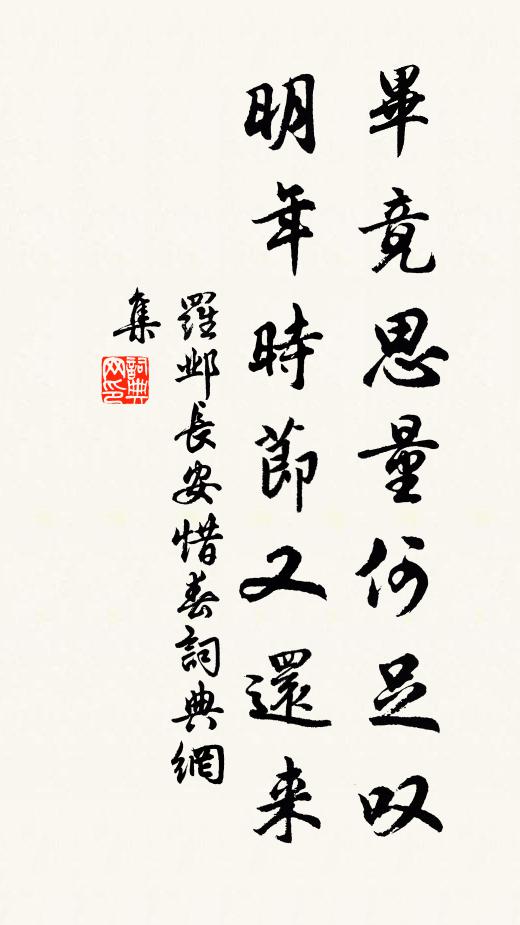 畢竟思量何足叹
明年時節又還来
羅邺長安惜春詞典網
集
詞典
网印